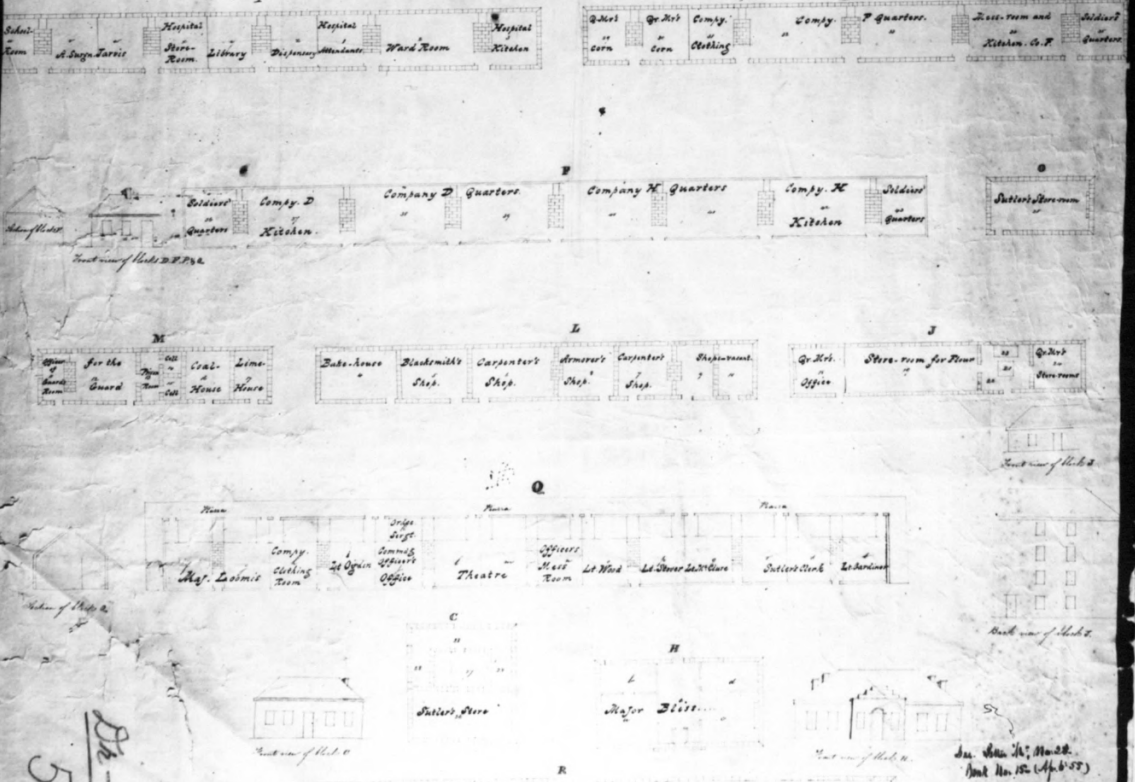 School-
Room
A. Surgn. Jarvis
Hospital
Store-
Room
Library
Dispensary
Hospital
Attendants
Ward Room
Hospital
Kitchen
Q. Mr's
Corn
Qr. Mr's
Corn
Compy.
Clothing
Compy. F Quarters.
Mess-room and
Kitchen. Co. F.
Soldiers'
Quarters
G
P
O
Soldiers'
Quarters
Compy. D
Kitchen.
Company D Quarters
Company H Quarters
Compy. H
Kitchen
Soldiers'
Quarters
Sutler's Store-room
Front view of blocks D. F. P. & Q.
M
L
J
Officer
of
Guards
Room
for the
Guard
Prison
Room
Cell
Cell
Coal-
House
Lime-
House
Bake-house
Blacksmith's
Shop.
Carpenter's
Shop.
Armorer's
Shop.
Carpenter's
Shop.
Shops-vacant.
Qr. Mr's.
Office
Store-room for Flour
Qr. Mr's
Store-rooms
Front view of block J
Q
Piazza
Piazza
Piazza
Maj. Loomis
Compy.
Clothing
Room
Lt Ogden
Ordge.
Sergt.
Commdg
Officer's
Office
Theatre
Officers
Mess
Room
Lt Wood
Lt. Storer
Lt. McClure
Sutler's Clerk
Lt. Gardiner
Section of block Q.
C
Sutler's Store
H
Major Bliss
Front view of block C
Front view of block H.
R